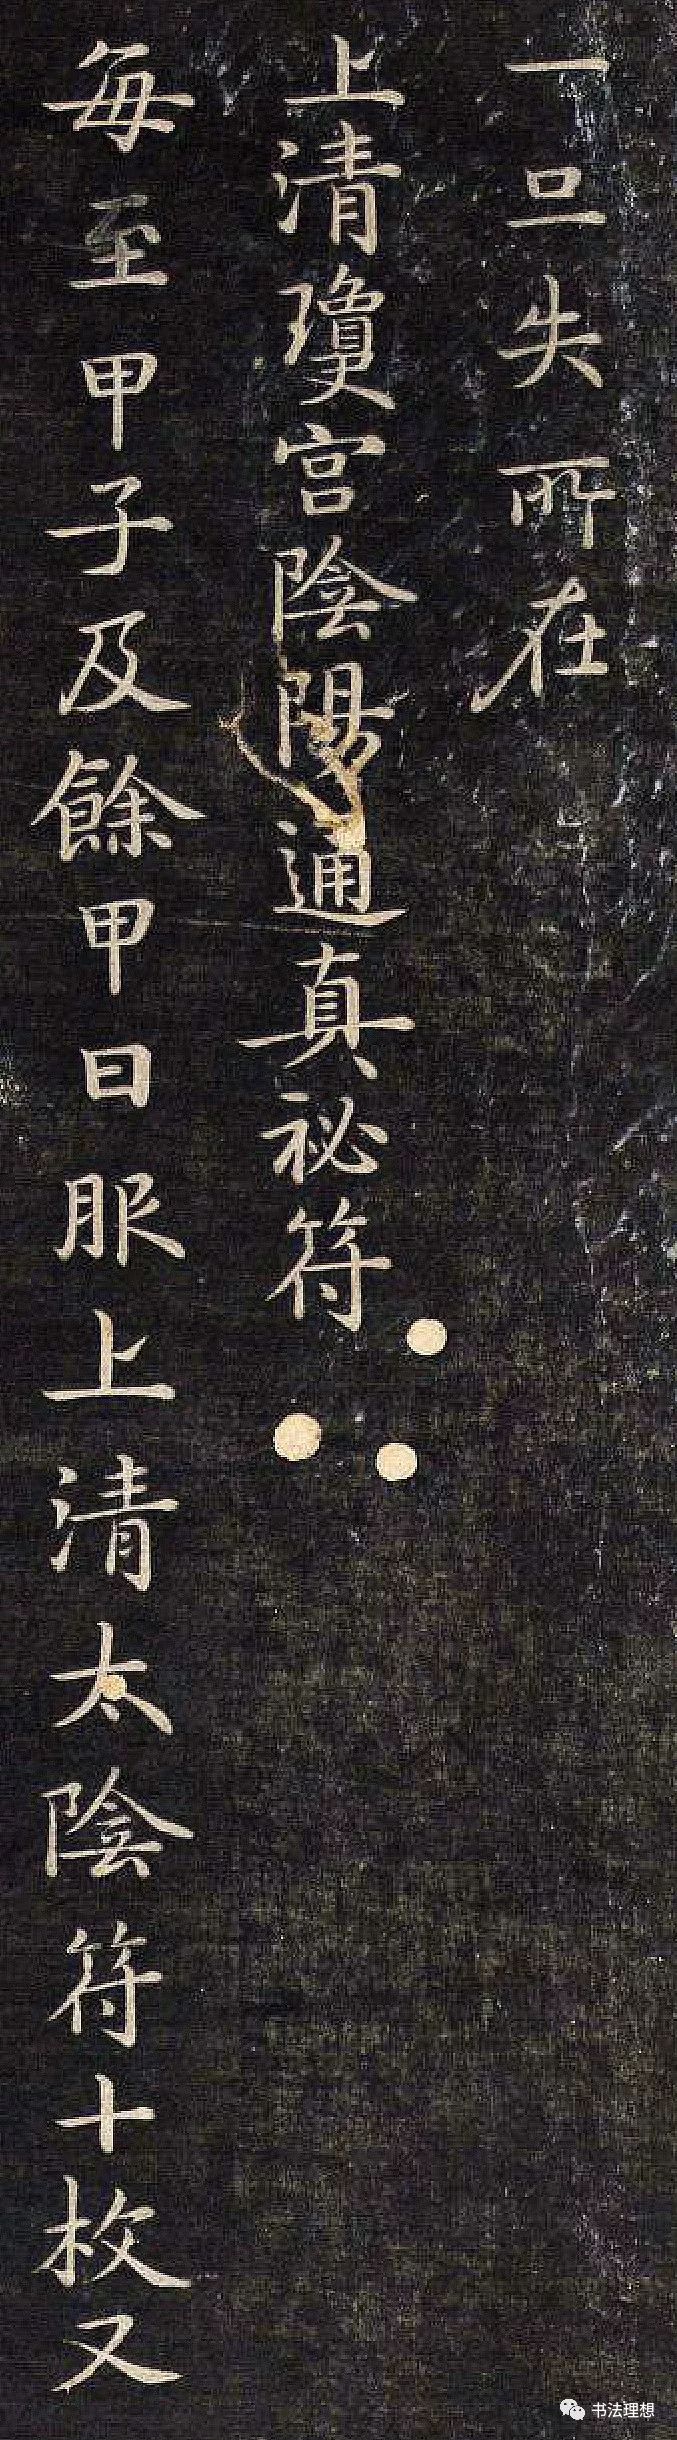 一旦失所在
上清瓊宮陰陽通真祕符
每至甲子及餘甲日服上清太陰符十枚又
书法理想